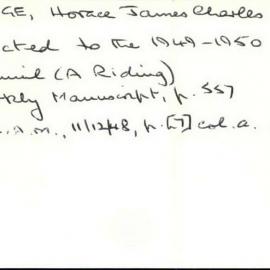 GE, Horace James Charles
cted to the 1949-1950
cil (A Riding)
kly Manuscript, p. 557
.A.M., 11/12/48, p.[7] col. a.